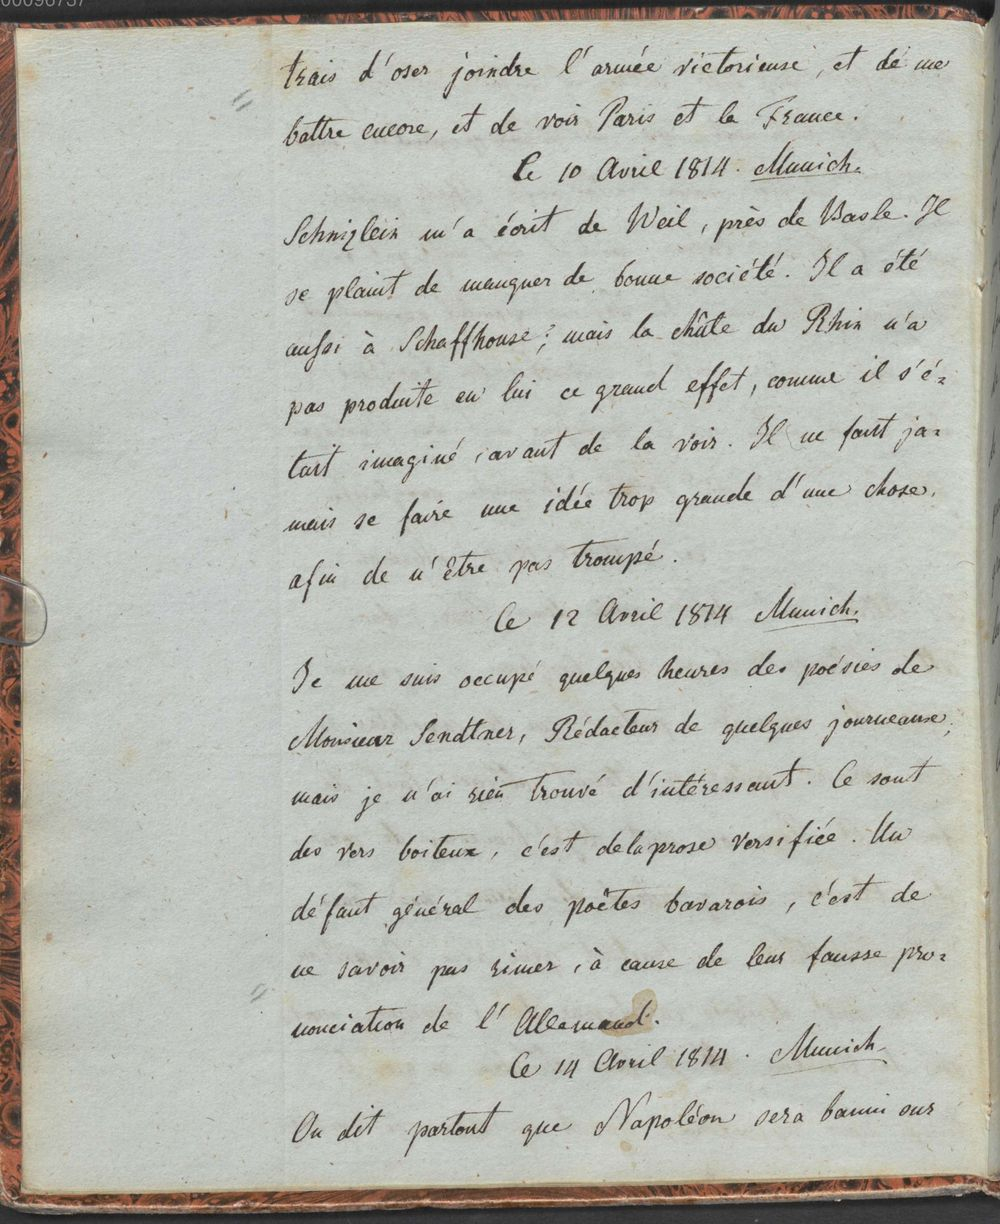 00096737
trais d'oser joindre l'armée victorieuse, et de me
battre encore, et de voir Paris et la France.
Ce 10 Avril 1814. Munich.
Schnizlein m'a écrit de Weil, près de Basle. Il
se plaint de manquer de bonne société. Il a été
aussi à Schaffhouse; mais la chûte du Rhin n'a
pas produite en lui ce grand effet, comme il s'é=
tait imaginé, avant de la voir. Il ne faut ja=
mais se faire une idée trop grande d'une chose,
afin de n'être pas trompé.
Ce 12 Avril 1814 Munich.
Je me suis occupé quelques heures des poésies de
Monsieur Sendtner, Rédacteur de quelques journeaux;
mais je n'ai rien trouvé d'intéressant. Ce sont
des vers boiteux, c'est de la prose versifiée. Un
défaut général des poëtes bavarois, c'est de
ne savoir pas rimer, à cause de leur fausse pro=
nonciation de l'Allemand.
Ce 14 Avril 1814. Munich.
On dit partout que Napoléon sera banni sur